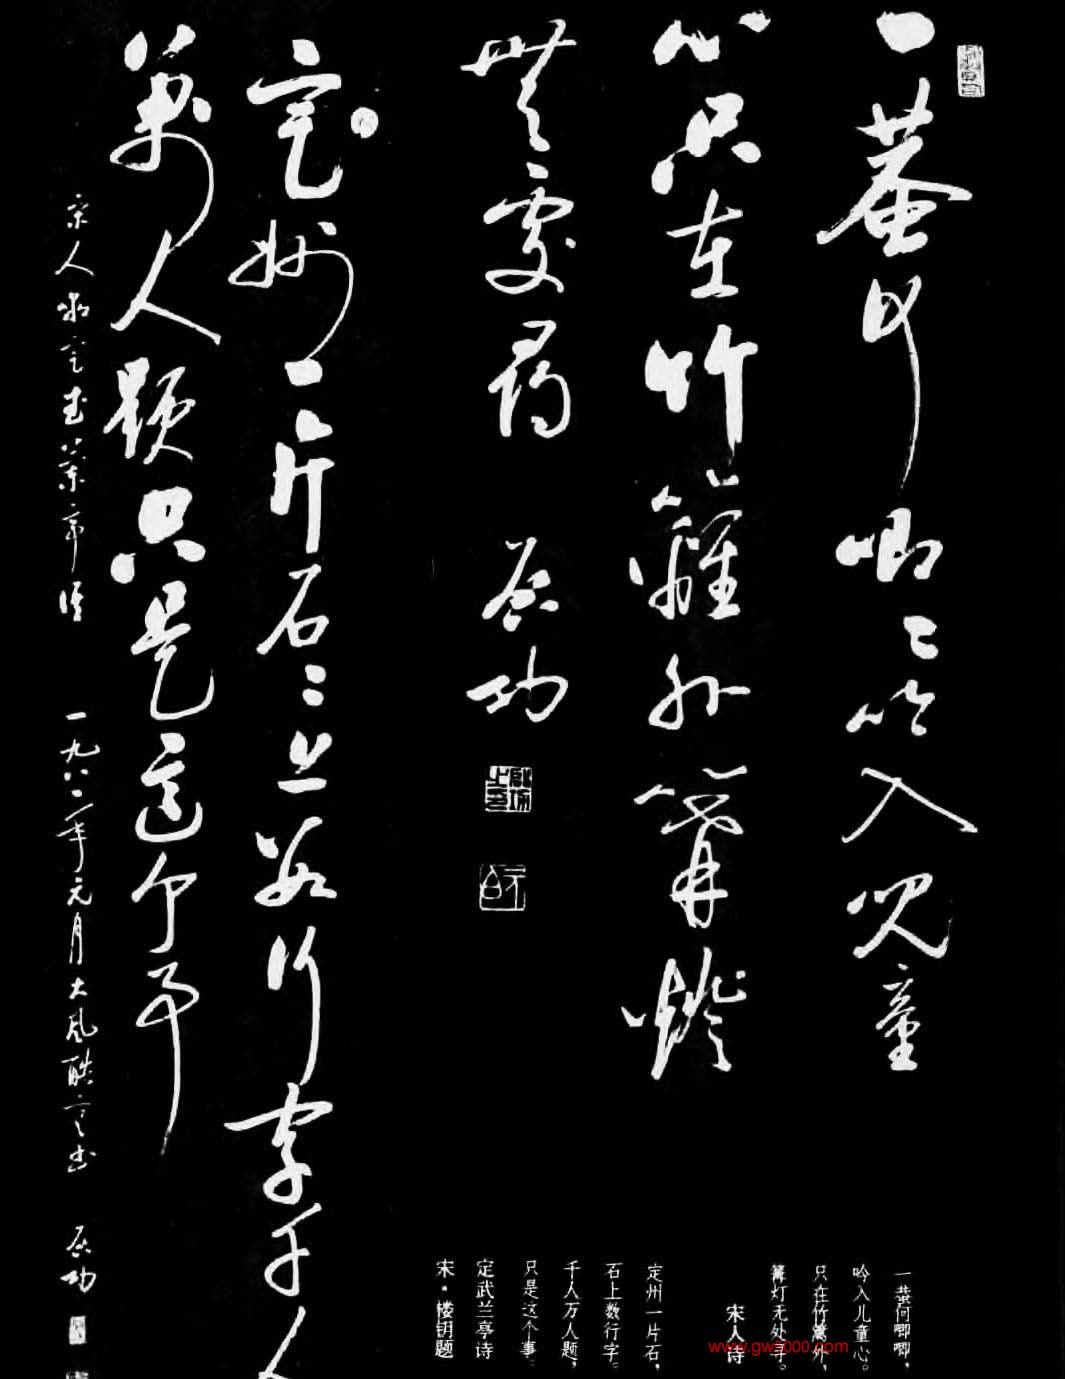 一蛬何唧〻吟入兒童
心只在竹籬外篝燈
無處尋 启功
啟功之印
元白
定州一片石〻上數行字千人
萬人題只是這个事
宋人詠定武蘭亭 一九八二年元月大風酷寒書 启功
一蛬何唧唧，
吟入儿童心。
只在竹篱外，
篝灯无处寻。
宋人诗
定州一片石，
石上数行字。
千人万人题，
只是这个事。
定武兰亭诗
宋·楼钥题
www.gw5000.com